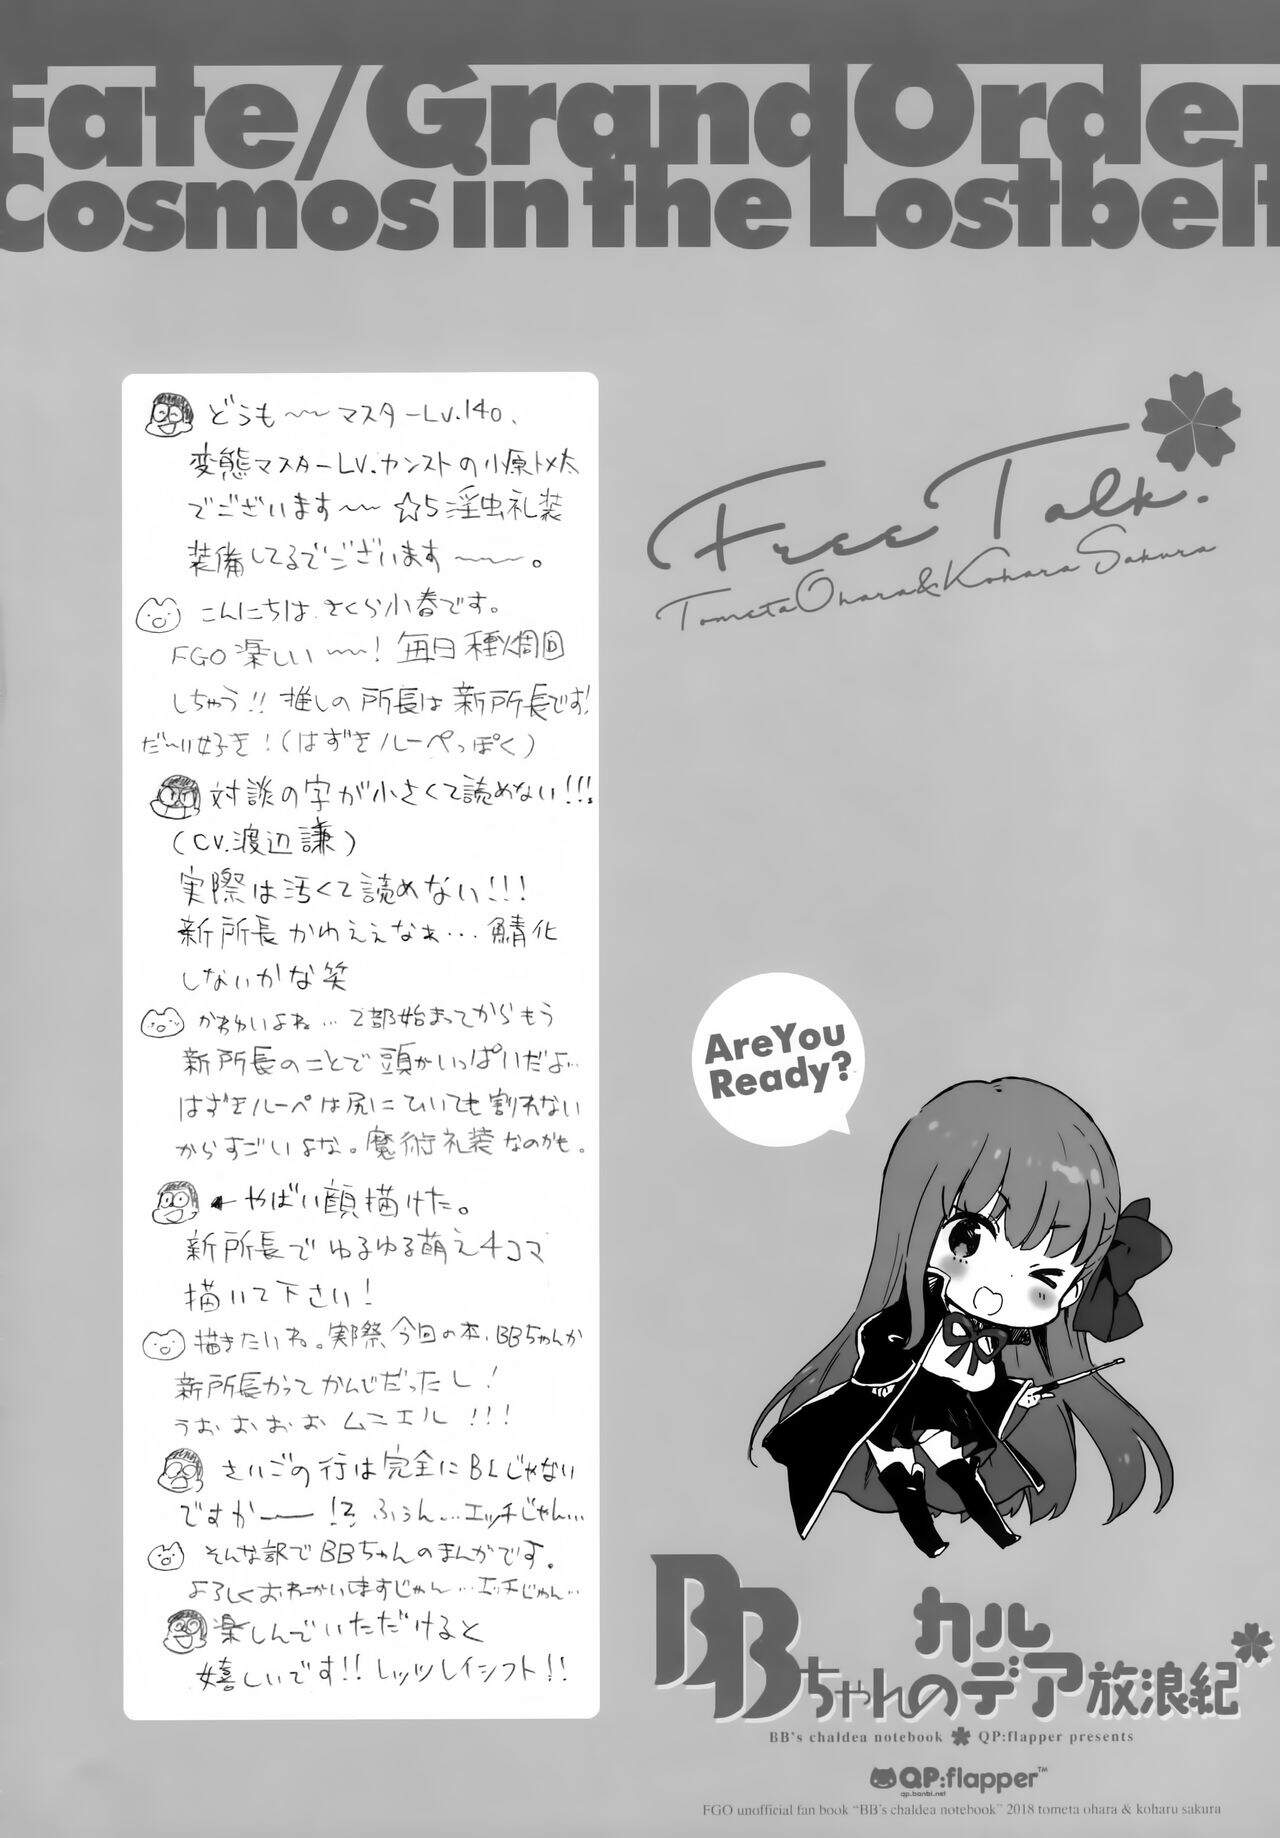 Fate/Grand Order
Cosmos in the Lostbelt
どうも～～マスターLv.140、
変態マスターLv.カンストの小原トメ太
でございます～～ ☆5淫虫礼装
装備してるでございます～～～。
こんにちは、さくら小春です。
FGO楽しい～～！毎日種火周回
しちゃう!! 推しの所長は新所長です！
だ～い好き！(はずきルーペっぽく)
対談の字が小さくて読めない!!!
(CV.渡辺謙)
実際は汚くて読めない!!!
新所長かわええなぁ…鯖化
しないかな笑
かわいいよね…2部始まってからもう
新所長のことで頭がいっぱいだよ…
はずきルーペは尻にひいても割れない
からすごいよな。魔術礼装なのかも。
←やばい顔描けた。
新所長でゆるゆる萌え4コマ
描いて下さい！
描きたいね。実際今回の本、BBちゃんが
新所長かってかんじだったし！
うおおおおムニエル!!!
さいごの行は完全にBLじゃない
ですかー!? ふぅん…エッチじゃん…
そんな訳でBBちゃんのまんがです。
よろしくおねがいしますじゃん…エッチじゃん…
楽しんでいただけると
嬉しいです!! レッツレイシフト!!
Free Talk.
Tometa Ohara & Koharu Sakura
Are You
Ready?
BBちゃんのカルデア放浪紀
BB's chaldea notebook QP:flapper presents
QP:flapper™
qp.banbi.net
FGO unofficial fan book "BB's chaldea notebook" 2018 tometa ohara & koharu sakura